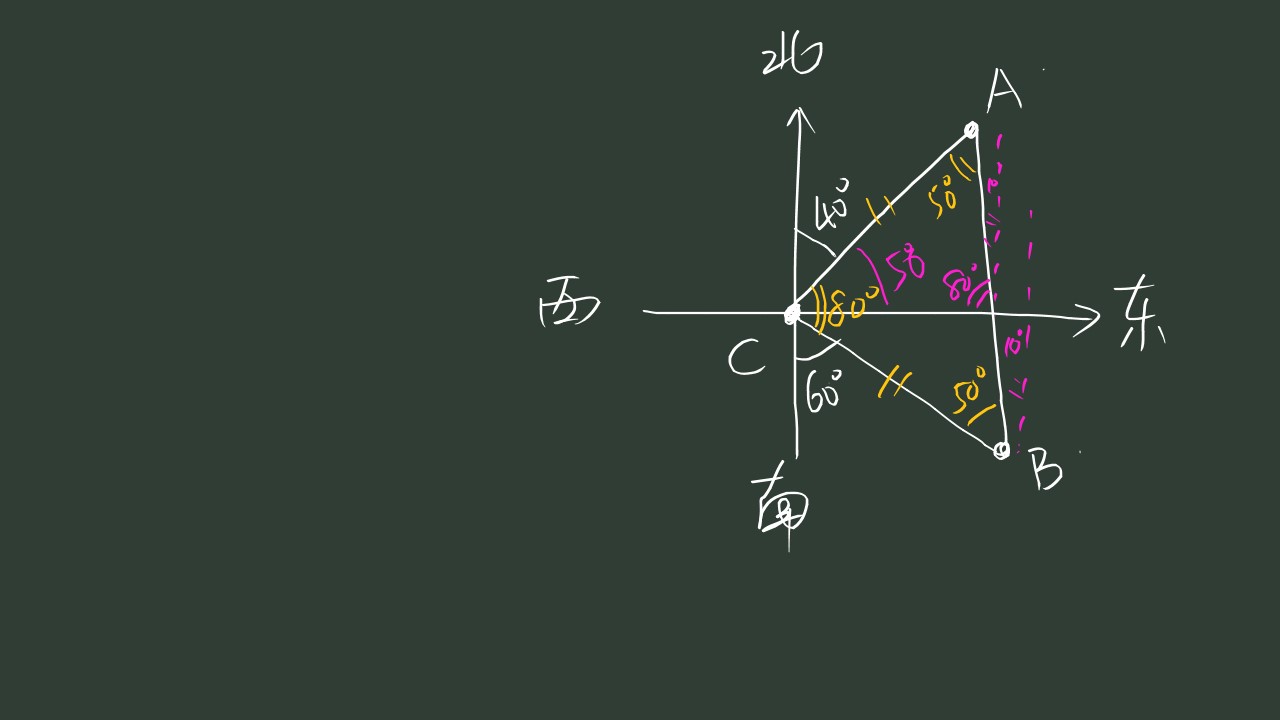 北
A
40°
50°
10°
50°
西
80°
80°
东
C
10°
60°
50°
B
南